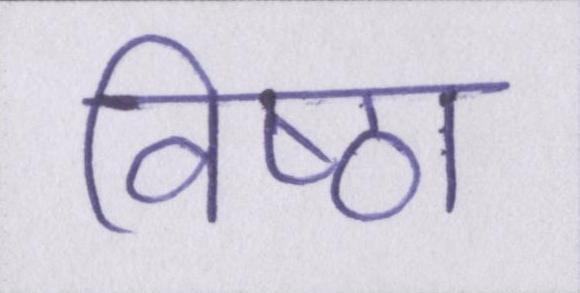 विष्ठा